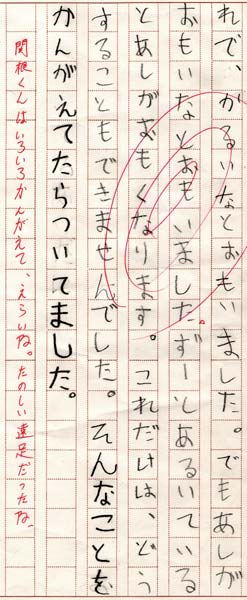 れで、かるいなとおもいました。でもあしが
おもいなとおもいました。ずーとあるいている
とあしがおもくなります。これだけは、どう
することもできませんでした。そんなことを
かんがえてたらついてました。
関根くんはいろいろかんがえて、えらいね。たのしい遠足だったね。